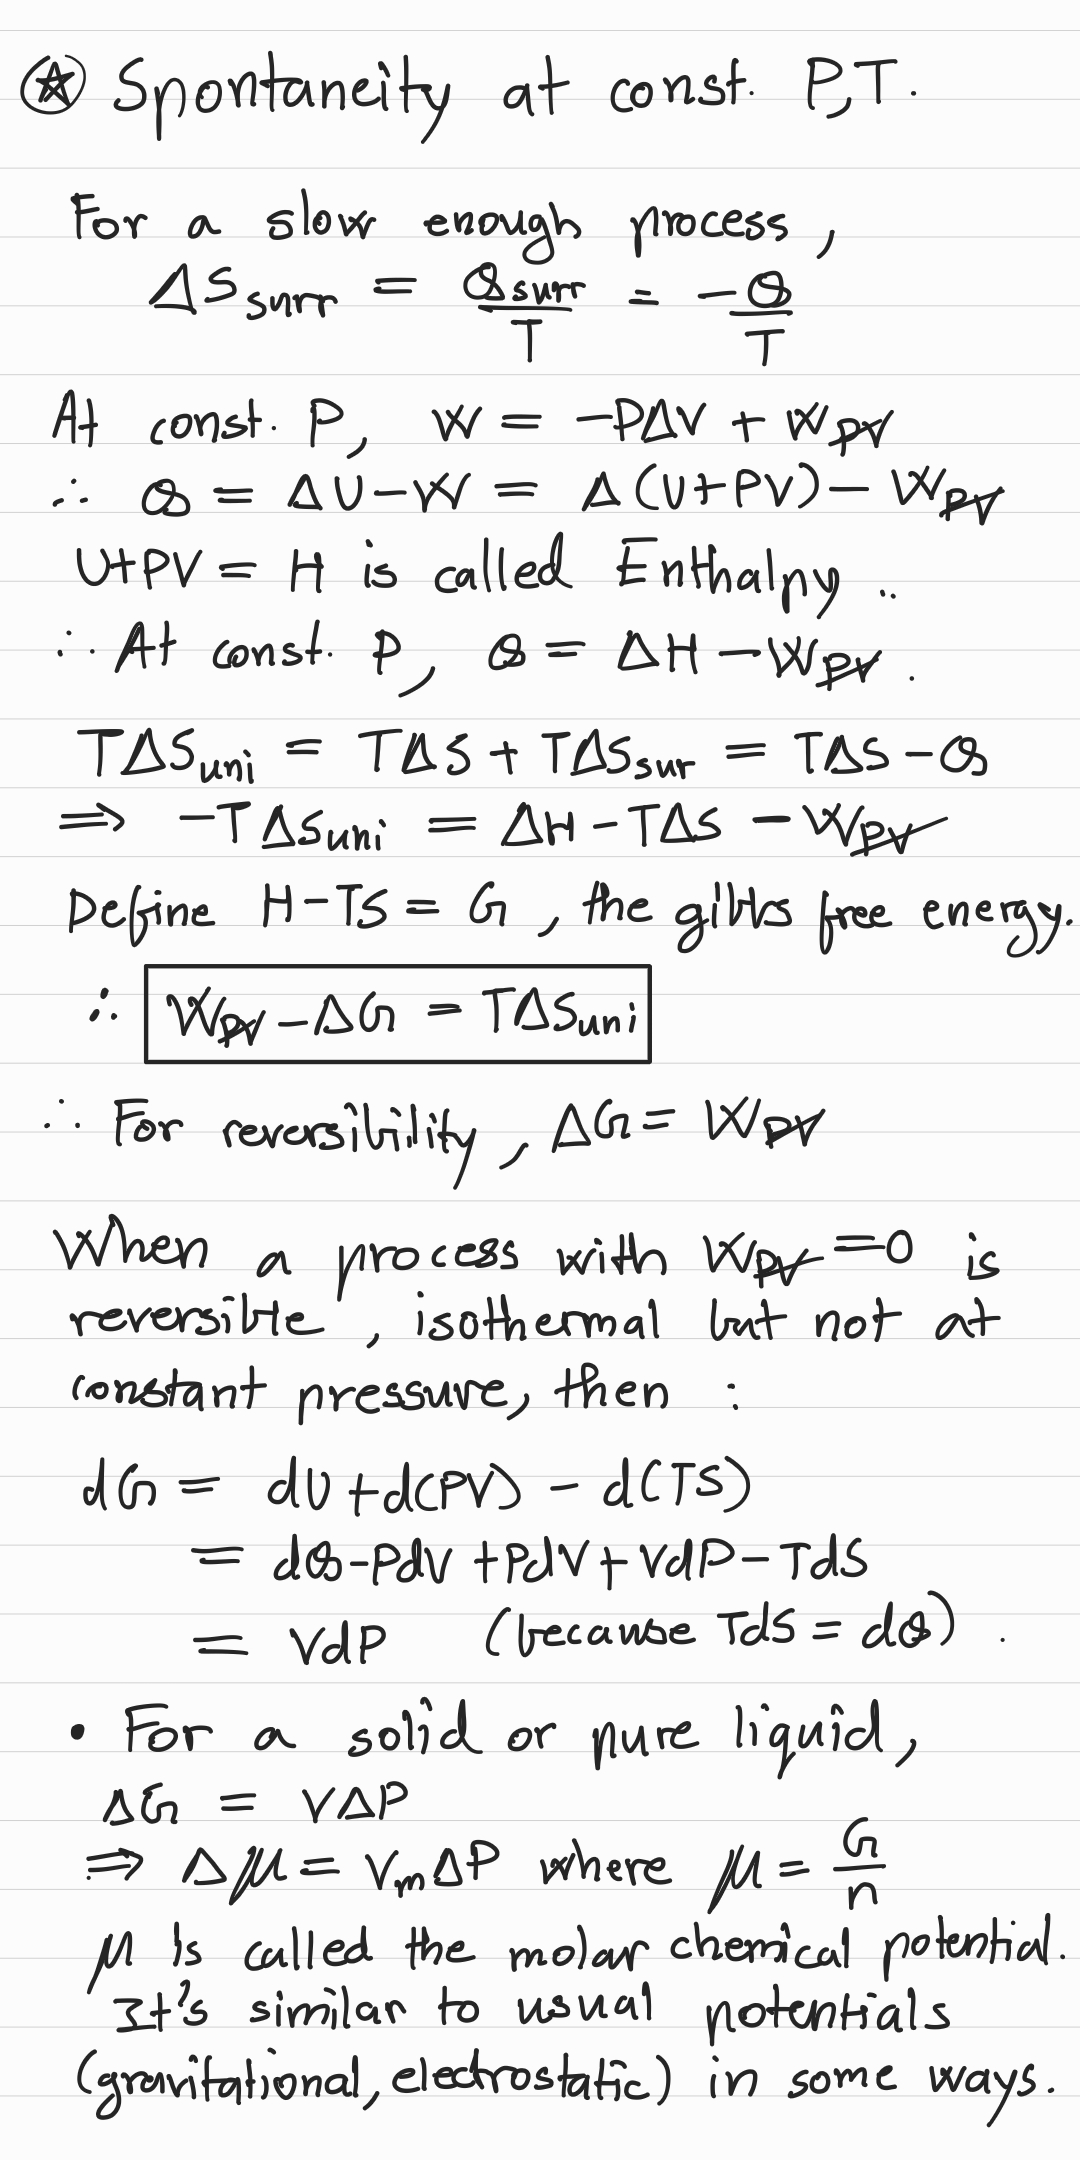 ⍟ Spontaneity at const. P,T.
For a slow enough process,
ΔS_surr = Q_surr/T = -Q/T
At const. P, W = -PΔV + W_P̶V̶
∴ Q = ΔU-W = Δ(U+PV) - W_P̶V̶
U+PV = H is called Enthalpy.
∴ At const. P, Q = ΔH - W_P̶V̶.
TΔS_uni = TΔS + TΔS_sur = TΔS - Q
⇒ -TΔS_uni = ΔH - TΔS - W_P̶V̶
Define H-TS = G, the gibbs free energy.
∴ W_P̶V̶ - ΔG = TΔS_uni
∴ For reversibility, ΔG = W_P̶V̶
When a process with W_P̶V̶ = 0 is
reversible, isothermal but not at
constant pressure, then :
dG = dU + d(PV) - d(TS)
= dQ - PdV + PdV + VdP - TdS
= VdP (because TdS = dQ).
• For a solid or pure liquid,
ΔG = VΔP
⇒ Δμ = V_m ΔP where μ = G/n
μ is called the molar chemical potential.
It's similar to usual potentials
(gravitational, electrostatic) in some ways.